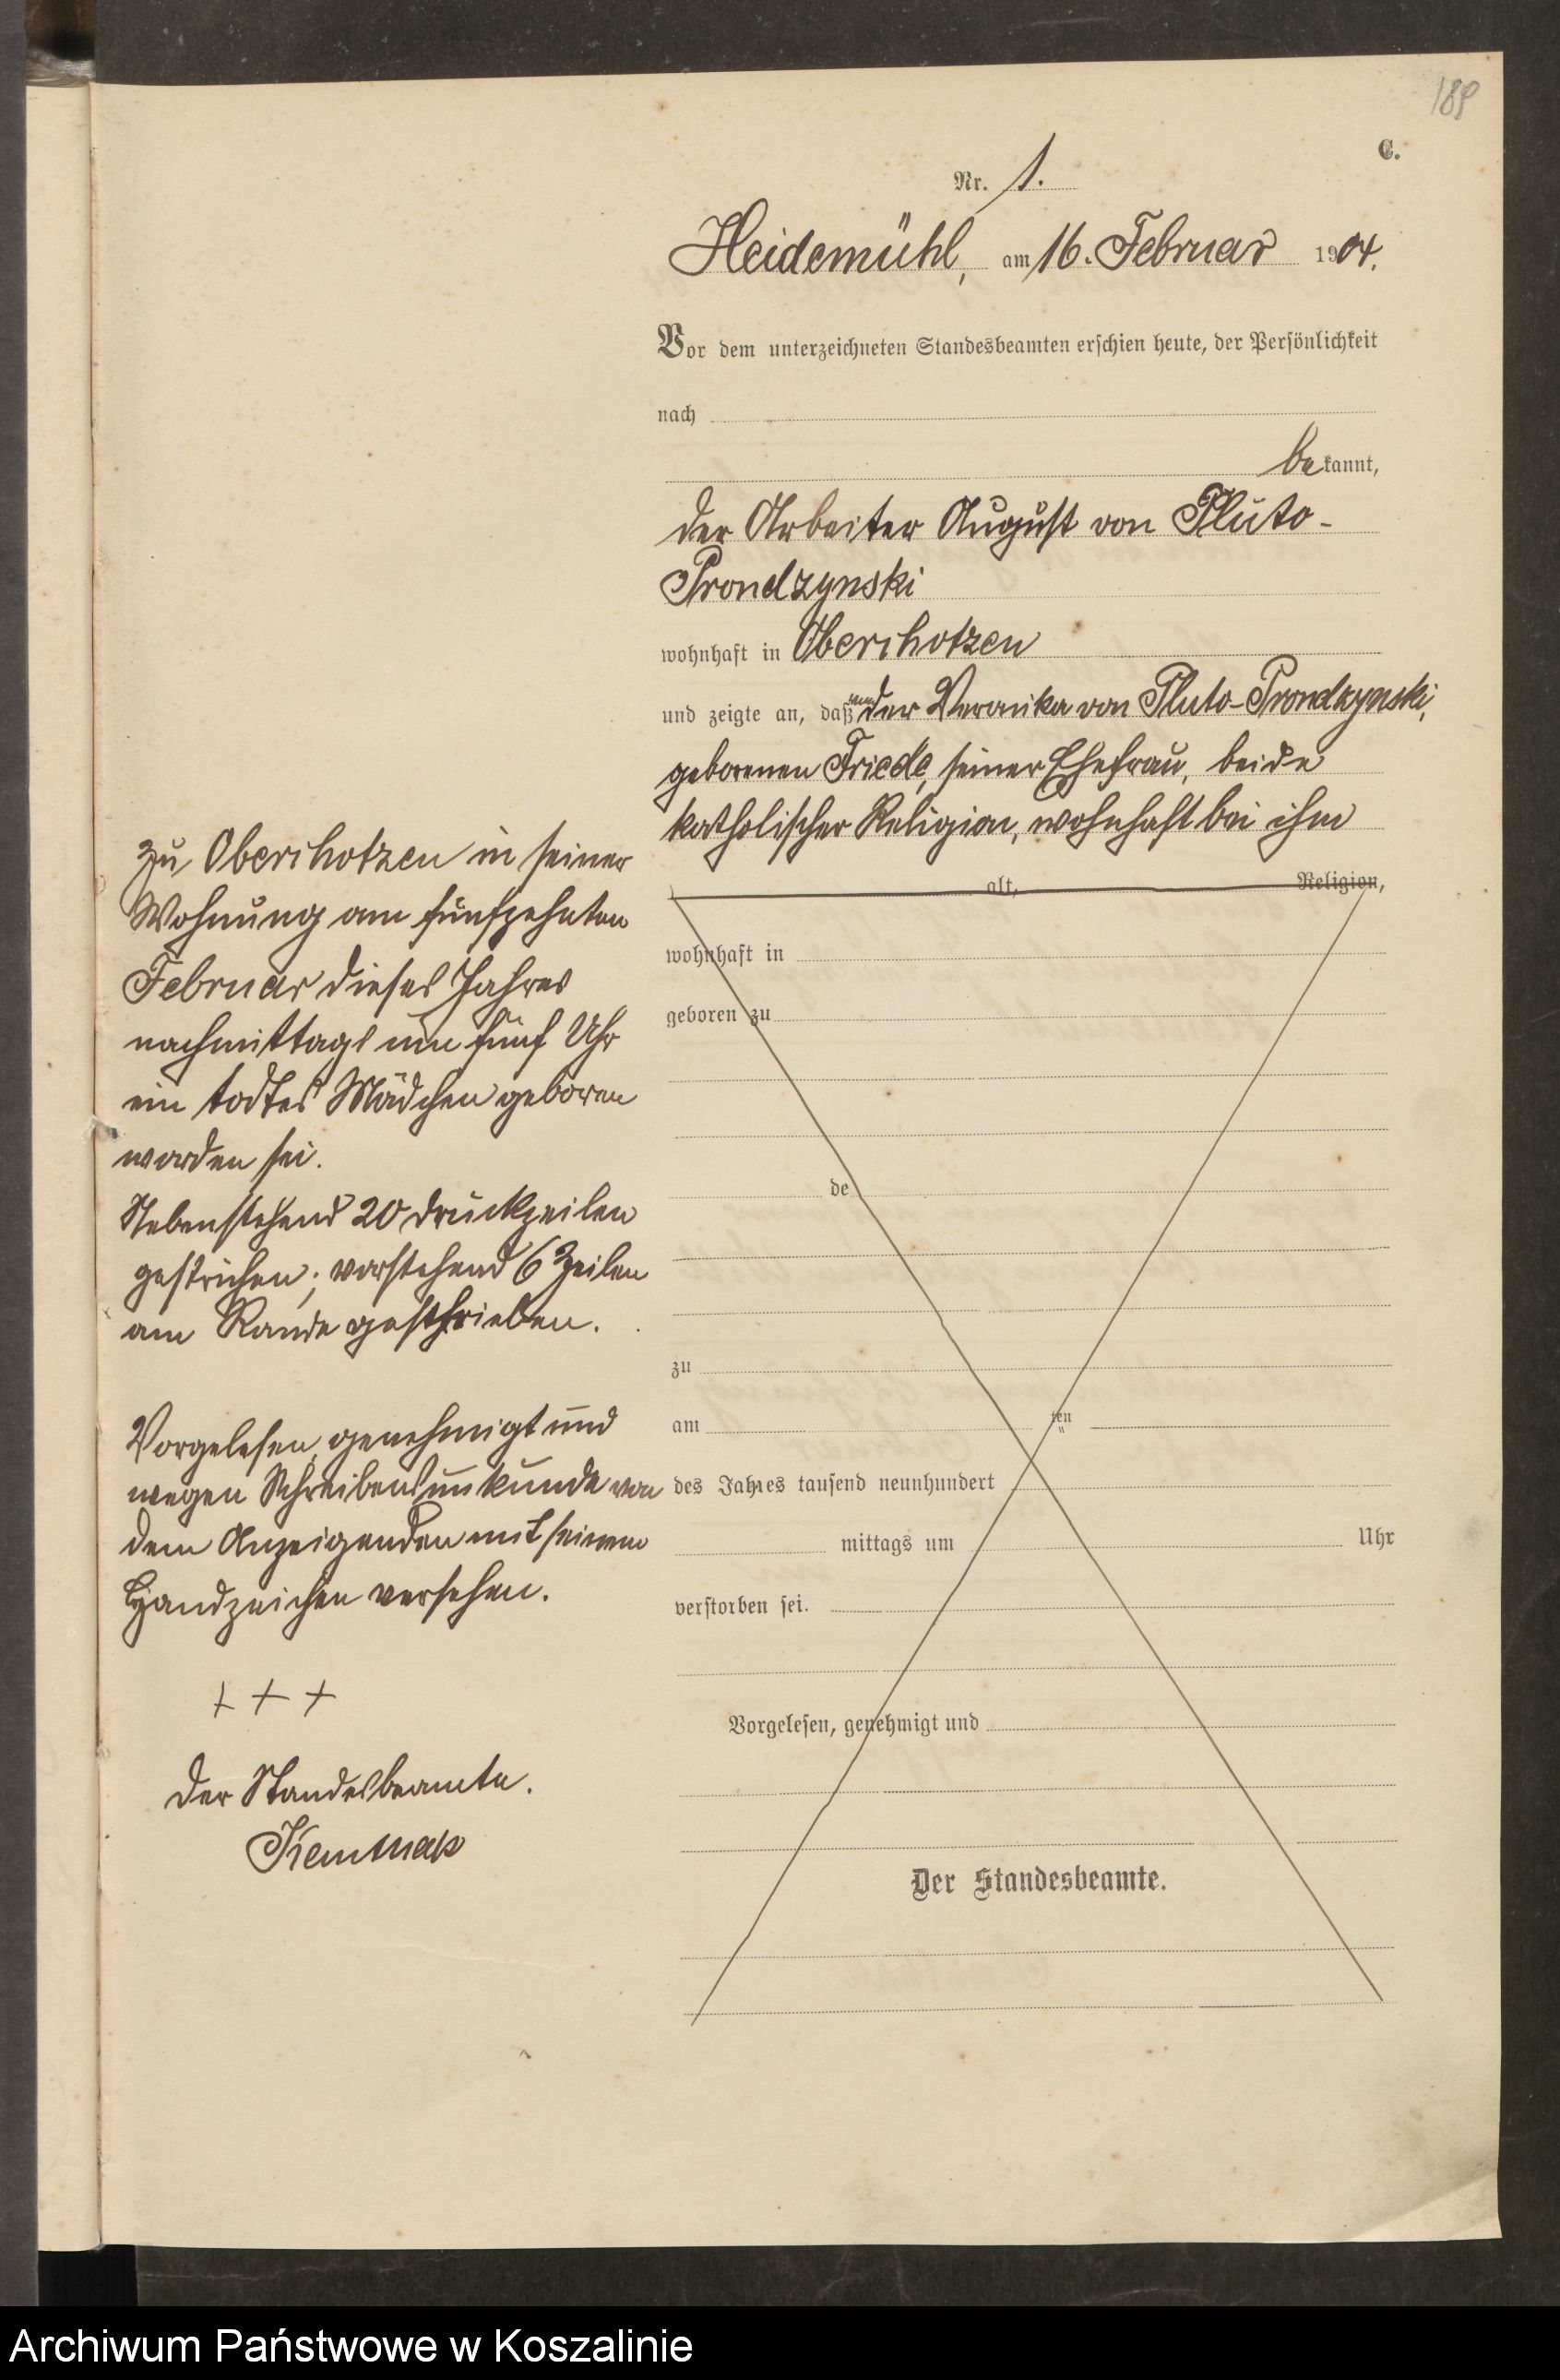 189
C.
Nr. 1.
Heidemühl, am 16. Februar 1904.
Vor dem unterzeichneten Standesbeamten erschien heute, der Persönlichkeit
nach
bekannt,
der Arbeiter August von Pluto-
Prondzynski
wohnhaft in Oberchotzen
und zeigte an, daß von der Veronika von Pluto-Prondzynski,
geborenen Friede, seiner Ehefrau, beide
katholischer Religion, wohnhaft bei ihm
zu Oberchotzen in seiner
Wohnung am fünfzehnten
Februar dieses Jahres
nachmittags um fünf Uhr
ein todtes Mädchen geboren
worden sei.
Nebenstehend 20 Druckzeilen
gestrichen; vorstehend 6 Zeilen
am Rande geschrieben.
Vorgelesen, genehmigt und
wegen Schreibensunkunde von
dem Anzeigenden mit seinem
Handzeichen versehen.
+ + +
Der Standesbeamte.
alt, Religion,
wohnhaft in
geboren zu
de
zu
am ten
des Jahres tausend neunhundert
mittags um Uhr
verstorben sei.
Vorgelesen, genehmigt und
Der Standesbeamte.
Archiwum Państwowe w Koszalinie